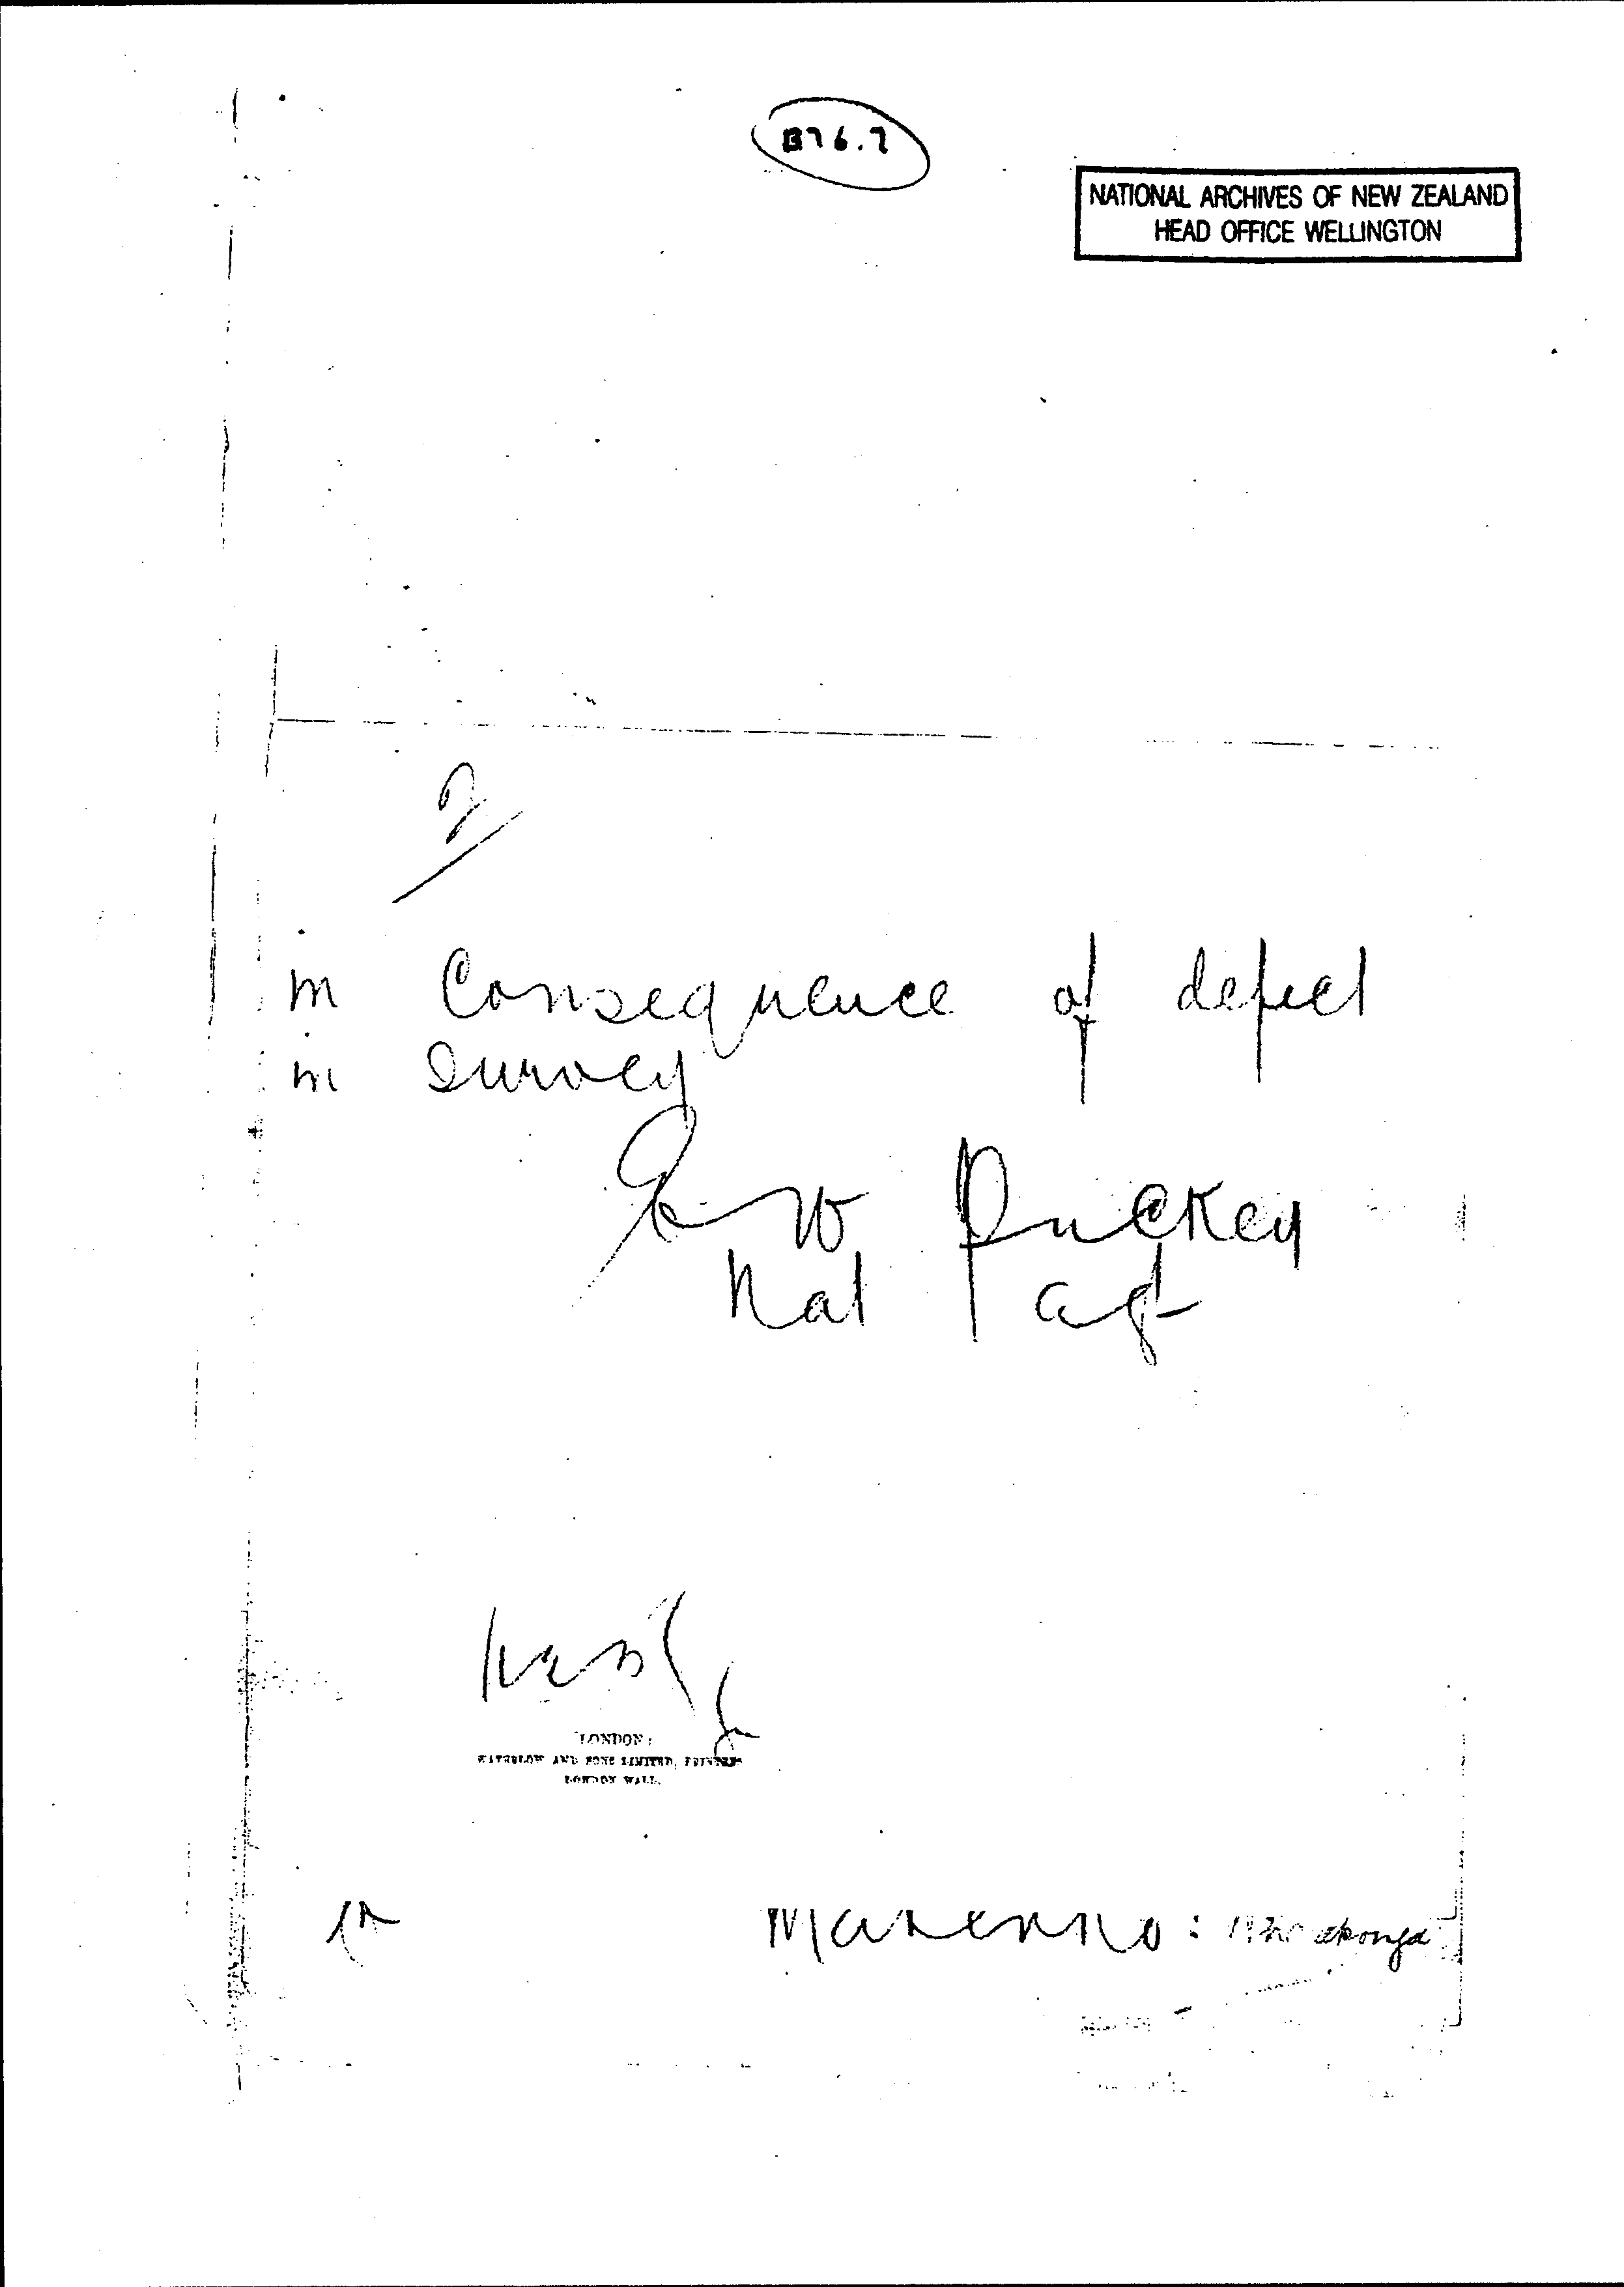 B76.7
NATIONAL ARCHIVES OF NEW ZEALAND
HEAD OFFICE WELLINGTON
2
in Consequence of defect
in survey
E W Puckey
Nat Agt
LONDON:
WATERLOW AND SONS LIMITED, PRINTERS
LONDON WALL.